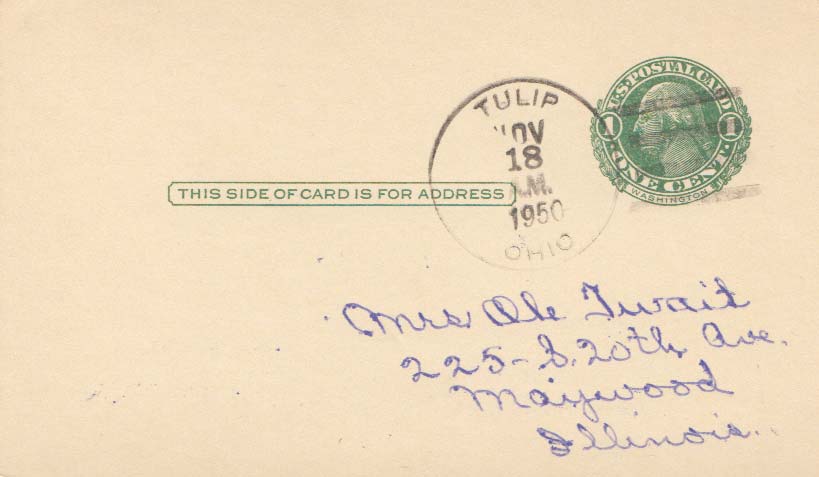 U.S. POSTAL CARD
1 1
ONE CENT
WASHINGTON
TULIP
NOV
18
A.M.
1950
OHIO
THIS SIDE OF CARD IS FOR ADDRESS
Mrs Ole Twait
225-S. 20th Ave.
Maywood
Illinois.